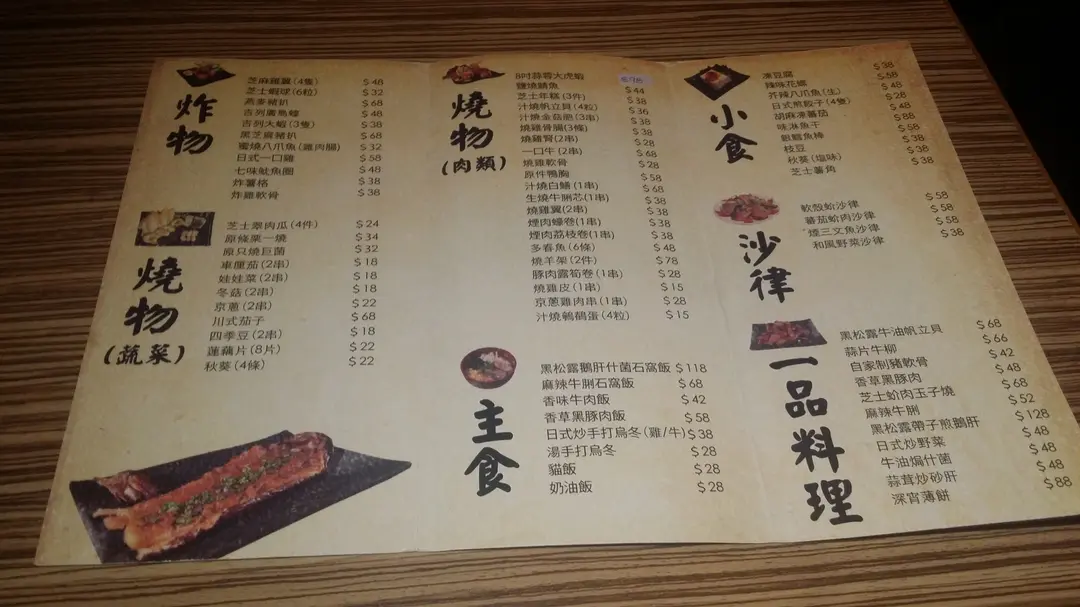 炸物
芝麻雞翼(4隻) $48
芝士蝦球(6粒) $32
燕麥豬扒 $68
吉列廣島蠔 $48
吉列大蝦(3隻) $38
黑芝麻豬扒 $68
蜜燒八爪魚(雞肉腸) $32
日式一口雞 $58
七味魷魚圈 $48
炸薯格 $38
炸雞軟骨 $38
燒物
(蔬菜)
芝士翠肉瓜(4件) $24
原條粟一燒 $34
原只燒巨菌 $32
車厘茄(2串) $18
娃娃菜(2串) $18
冬菇(2串) $18
京蔥(2串) $22
川式茄子 $68
四季豆(2串) $18
蓮藕片(8片) $22
秋葵(4條) $22
燒物
(肉類)
8吋蒜蓉大虎蝦
鹽燒鯖魚 $44
芝士年糕(3件) $38
汁燒帆立貝(4粒) $36
汁燒金菇胞(3串) $38
燒雞腎腸(3條) $28
燒雞腎(2串) $28
一口牛(2串) $68
燒雞軟骨 $28
原件鴨胸 $58
汁燒白鱔(1串) $68
生燒牛脷芯(1串) $38
燒雞翼(2串) $38
煙肉蠔卷(1串) $38
煙肉荔枝卷(1串) $38
多春魚(6條) $48
燒羊架(2件) $78
豚肉露筍卷(1串) $28
燒雞皮(1串) $15
京蔥雞肉串(1串) $28
汁燒鵪鶉蛋(4粒) $15
主食
黑松露鵝肝什菌石窩飯 $118
麻辣牛脷石窩飯 $68
香味牛肉飯 $42
香草黑豚肉飯 $58
日式炒手打烏冬(雞/牛) $38
湯手打烏冬 $28
貓飯 $28
奶油飯 $28
小食
凍豆腐 $38
辣味花螺 $58
芥辣八爪魚(生) $48
日式煎餃子(4隻) $28
胡麻凍蕃茄 $48
味淋魚干 $88
銀鱈魚棒 $58
枝豆 $38
秋葵(塩味) $38
芝士薯角 $38
沙律
軟殼蛤沙律 $58
蕃茄蛤肉沙律 $58
煙三文魚沙律 $58
和風野菜沙律 $38
一品料理
黑松露牛油帆立貝 $68
蒜片牛柳 $66
自家制豬軟骨 $42
香草黑豚肉 $48
芝士蛤肉玉子燒 $68
麻辣牛脷 $52
黑松露帶子煎鵝肝 $128
日式炒野菜 $48
牛油焗什菌 $48
蒜茸炒砂肝 $48
深宵薄餅 $88